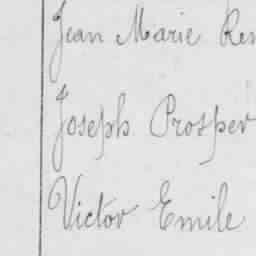 Jean Marie Ren
Joseph Prosper
Victor Emile